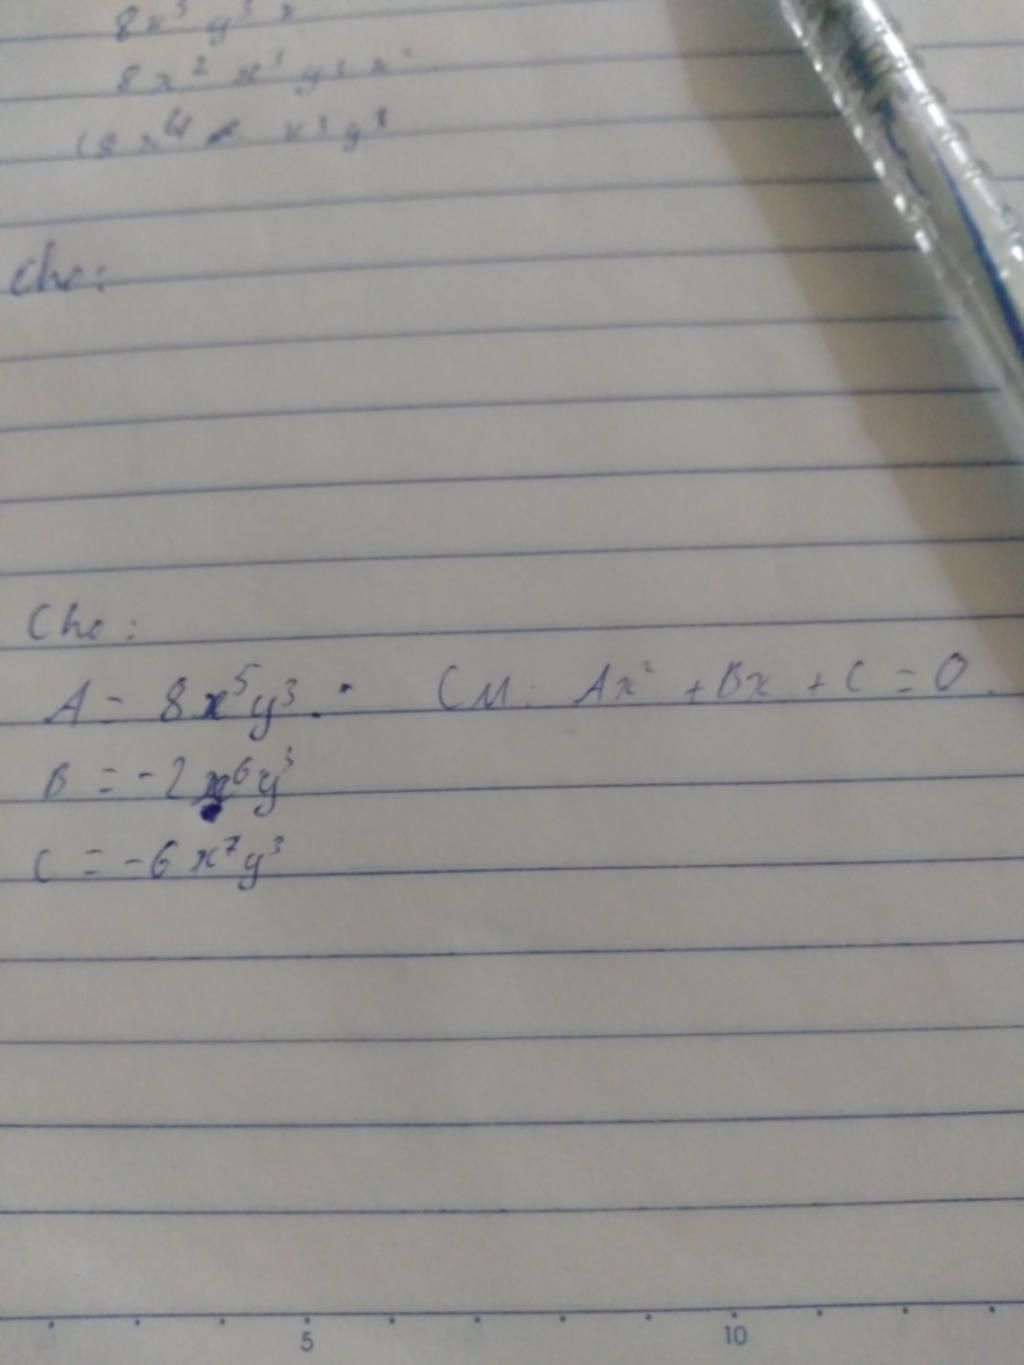 8x⁵ y³ x
8 x² x³ y³ x²
x³ y³
Cho:
Cho:
A = 8x⁵y³. CM: Ax² + Bx + C = 0.
B = -2x⁶y³
C = -6x⁷y³
5 10